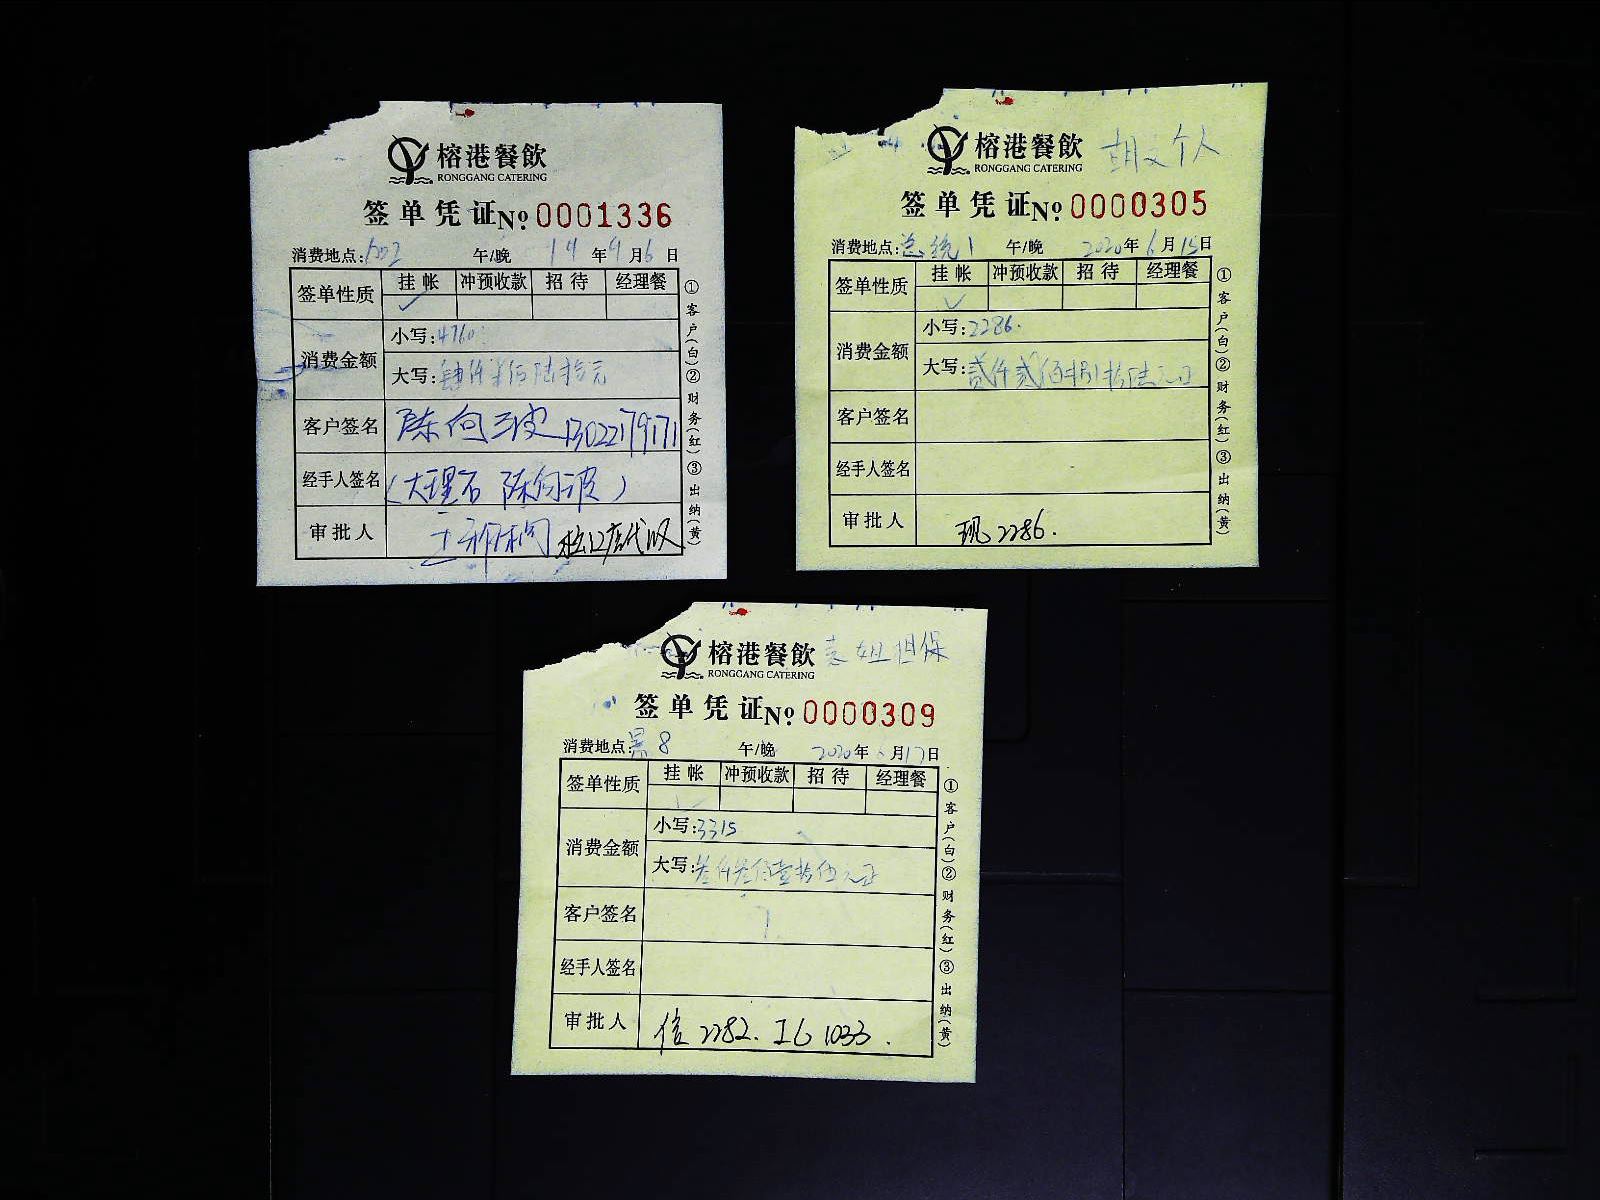 榕港餐飲
RONGGANG CATERING
签单凭证 No 0001336
消费地点: 午/晚 19年9月6日
签单性质 挂帐 冲预收款 招待 经理餐
✓
消费金额 小写:4760
大写:肆仟柒佰陆拾元
客户签名 陈向波 13022179171
经手人签名 (大理石 陈向波)
审批人
①客户(白)②财务(红)③出纳(黄)
榕港餐飲 胡文个人
RONGGANG CATERING
签单凭证 No 0000305
消费地点:总统1 午/晚 2020年6月15日
签单性质 挂帐 冲预收款 招待 经理餐
✓
消费金额 小写:2286.
大写:贰仟贰佰捌拾陆元正
客户签名
经手人签名
审批人 现2286.
①客户(白)②财务(红)③出纳(黄)
榕港餐飲 袁姐担保
RONGGANG CATERING
签单凭证 No 0000309
消费地点: 8 午/晚 2020年6月17日
签单性质 挂帐 冲预收款 招待 经理餐
✓
消费金额 小写:3315
大写:叁仟叁佰壹拾伍元正
客户签名
经手人签名
审批人 信2282. 工行1033.
①客户(白)②财务(红)③出纳(黄)